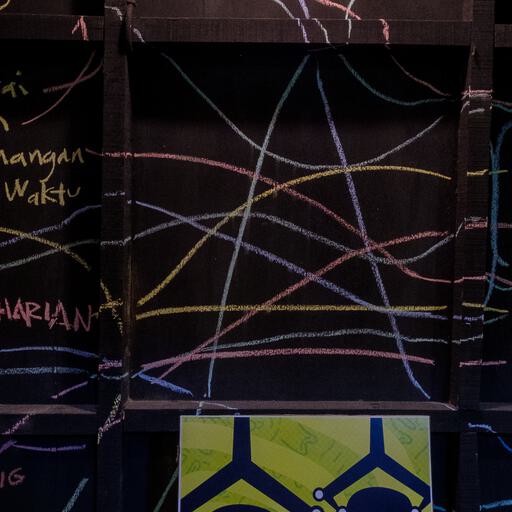 ai
n
nangan
Waktu
HARIAN
IG